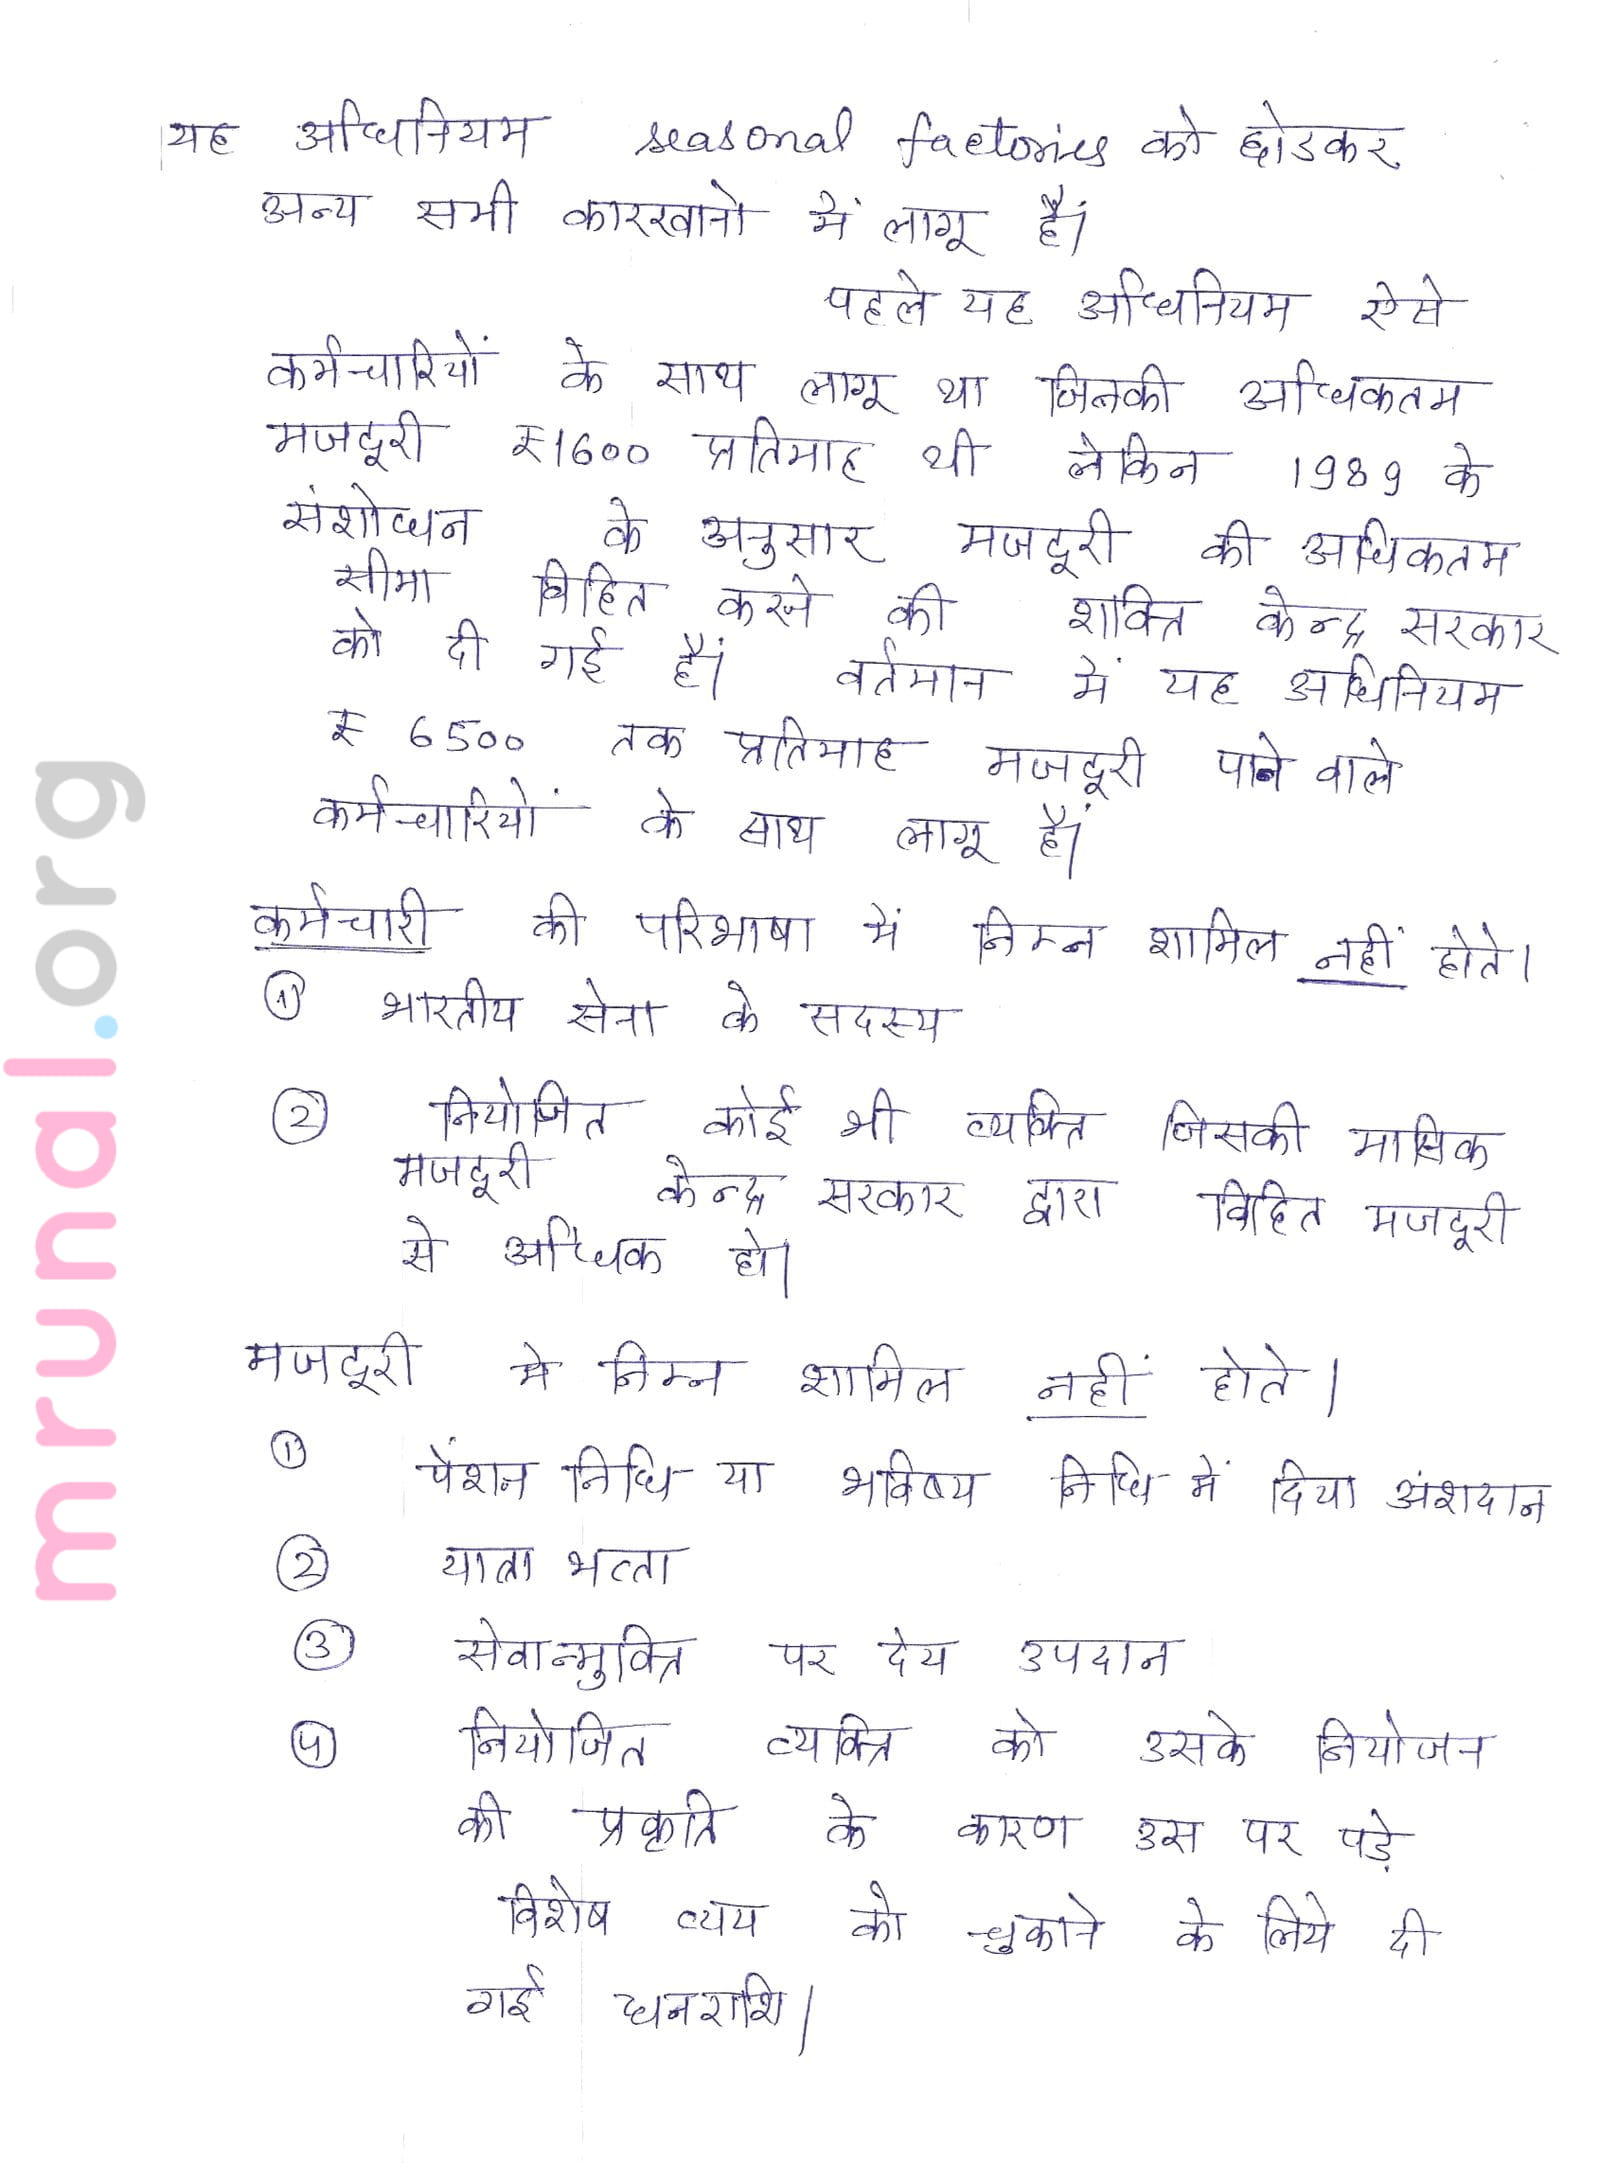 यह अधिनियम seasonal factories को छोडकर
अन्य सभी कारखानो में लागू हैं।
पहले यह अधिनियम ऐसे
कर्मचारियों के साथ लागू था जिनकी अधिकतम
मजदूरी ₹1600 प्रतिमाह थी लेकिन 1989 के
संशोधन के अनुसार मजदूरी की अधिकतम
सीमा विहित करने की शक्ति केन्द्र सरकार
को दी गई हैं। वर्तमान में यह अधिनियम
₹ 6500 तक प्रतिमाह मजदूरी पाने वाले
कर्मचारियों के साथ लागू हैं।
कर्मचारी की परिभाषा में निम्न शामिल नहीं होते।
① भारतीय सेना के सदस्य
② नियोजित कोई भी व्यक्ति जिसकी मासिक
मजदूरी केन्द्र सरकार द्वारा विहित मजदूरी
से अधिक हो।
मजदूरी मे निम्न शामिल नहीं होते।
① पेंशन निधि या भविष्य निधि में दिया अंशदान
② यात्रा भत्ता
③ सेवान्मुक्ति पर देय उपदान
④ नियोजित व्यक्ति को उसके नियोजन
की प्रकृति के कारण उस पर पड़े
विशेष व्यय को चुकाने के लिये दी
गई धनराशि।
mrunal.org